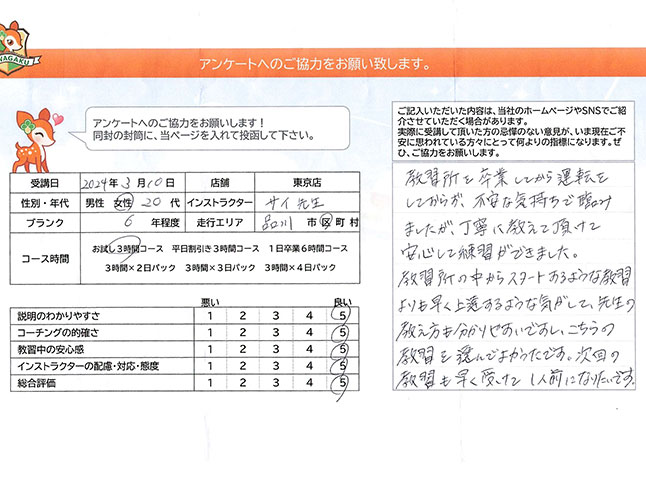 NAGAKU
アンケートへのご協力をお願い致します。
アンケートへのご協力をお願いします!
同封の封筒に、当ページを入れて投函して下さい。
受講日 2024年 3月 10日 店舗 東京店
性別・年代 男性 女性 20 代 インストラクター サイ 先生
ブランク 6 年程度 走行エリア 品川 市 区 町 村
コース時間
お試し3時間コース 平日割引き3時間コース 1日卒業6時間コース
3時間×2日パック 3時間×3日パック 3時間×4日パック
悪い 良い
説明のわかりやすさ 1 2 3 4 5
コーチングの的確さ 1 2 3 4 5
教習中の安心感 1 2 3 4 5
インストラクターの配慮・対応・態度 1 2 3 4 5
総合評価 1 2 3 4 5
ご記入いただいた内容は、当社のホームページやSNSでご紹
介させていただく場合があります。
実際に受講して頂いた方の忌憚のない意見が、いま現在ご不
安に思われている方々にとって何よりの指標になります。ぜ
ひ、ご協力をお願いします。
教習所を卒業してから運転を
してからが、不安な気持ちで臨み
ましたが、丁寧に教えて頂けて
安心して練習ができました。
教習所の中からスタートするような教習
よりも早く上達するような気がして、先生の
教え方も分かりやすいですし、こちらの
教習を選んでよかったです。次回の
教習も早く受けて1人前になりたいです。